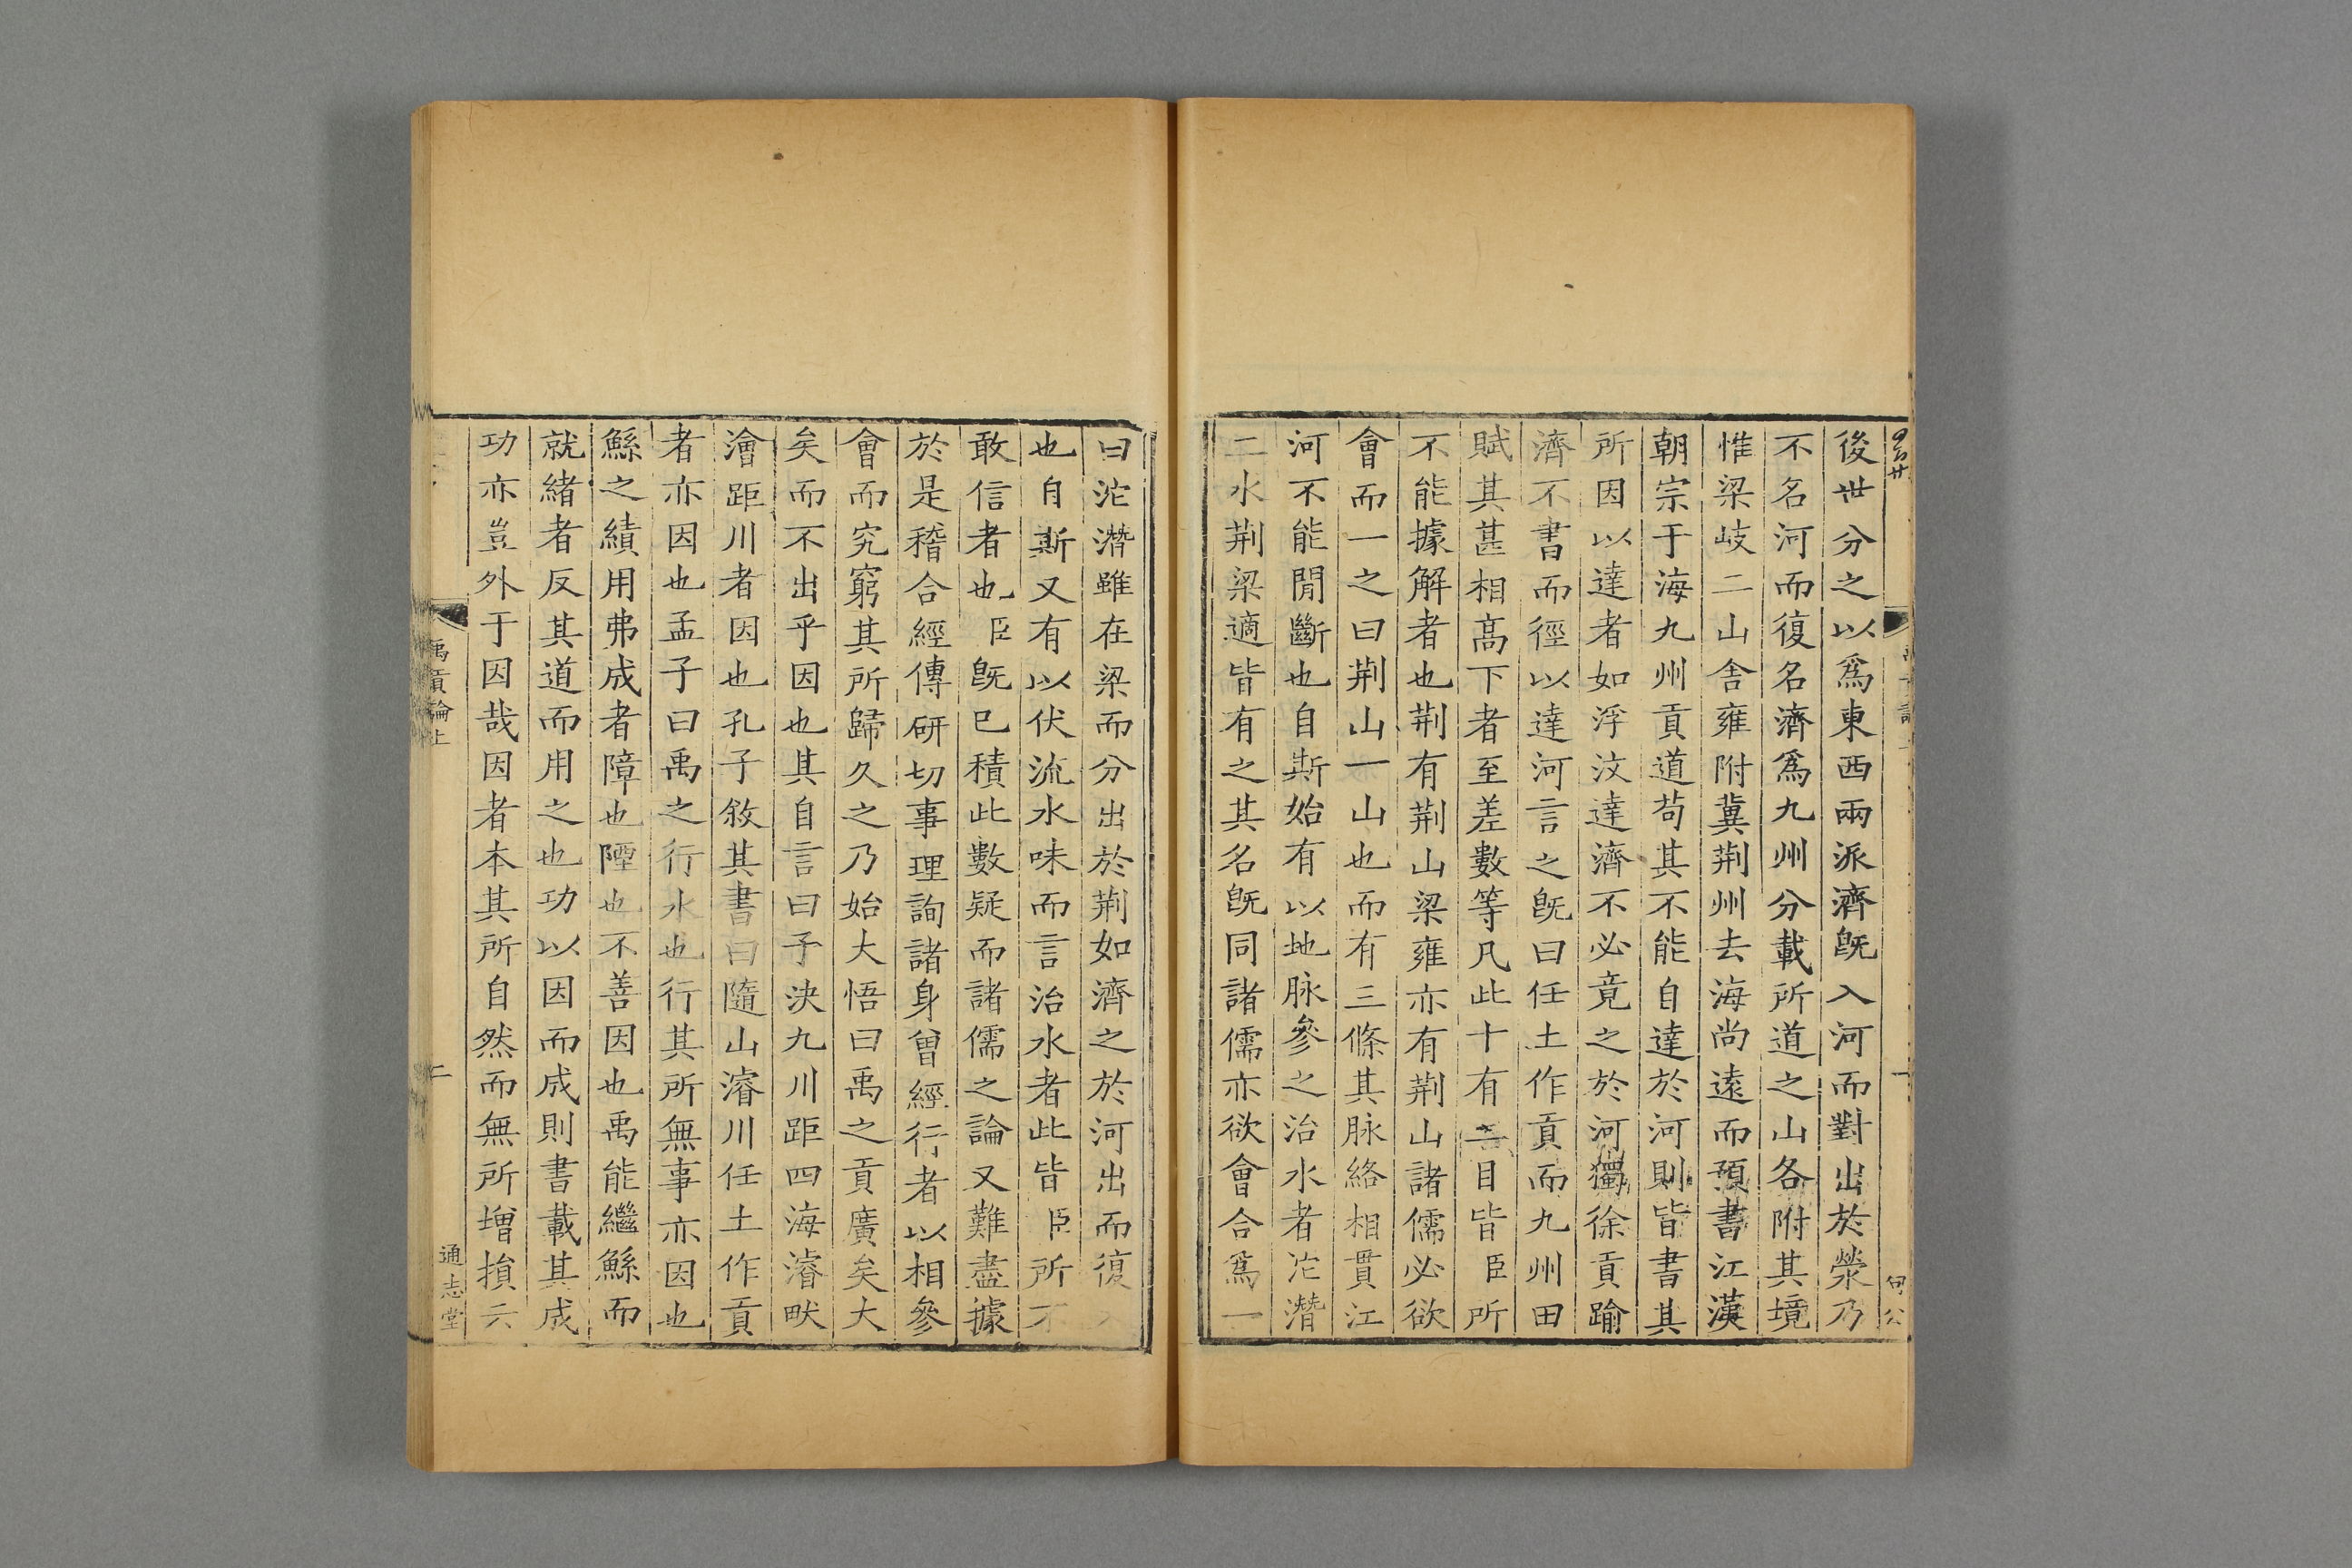 後世分之以爲東西兩派濟旣入河而對出於滎乃
不名河而復名濟爲九州分載所道之山各附其境
惟梁岐二山舎雍附冀荆州去海尚遠而預書江漢
朝宗于海九州貢道苟其不能自達於河則皆書其
所因以達者如浮汶達濟不必竟之於河獨徐貢踰
濟不書而徑以達河言之旣曰任土作貢而九州田
賦其甚相髙下者至差數等凡此十有二目皆臣所
不能據解者也荆有荆山梁雍亦有荆山諸儒必欲
會而一之曰荆山一山也而有三條其脉絡相貫江
河不能閒斷也自斯始有以地脉參之治水者沱潛
二水荆梁適皆有之其名旣同諸儒亦欲會合爲一
曰沱潛雖在梁而分出於荆如濟之於河出而復
也自斯又有以伏流水味而言治水者此皆臣所不
敢信者也臣旣已積此數疑而諸儒之論又難盡據
於是稽合經傳研切事理詢諸身曾經行者以相參
會而究窮其所歸久之乃始大悟曰禹之貢廣矣大
矣而不出乎因也其自言曰予決九川距四海濬畎
澮距川者因也孔子敘其書曰隨山濬川任土作貢
者亦因也孟子曰禹之行水也行其所無事亦因也
鯀之績用弗成者障也陻也不善因也禹能繼鯀而
就緒者反其道而用之也功以因而成則書載其成
功亦豈外于因哉因者本其所自然而無所增損云
禹貢論上
二
通志堂